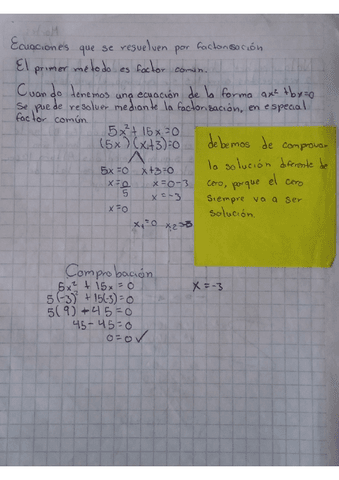 Ecuaciones que se resuelven por factorización
El primer método es factor común.
Cuando tenemos una ecuación de la forma ax²+bx=0
Se puede resolver mediante la factorización, en especial
factor común.
5x²+15x=0
(5x)(x+3)=0
5x=0 x+3=0
x=0/5 x=0-3
x=-3
x=0
x₁=0 x₂=-3
debemos de comprovar
la solución diferente de
cero, porque el cero
siempre va a ser
solución.
Comprobación
5x²+15x=0 x=-3
5(-3)²+15(-3)=0
5(9)-45=0
45-45=0
0=0✓